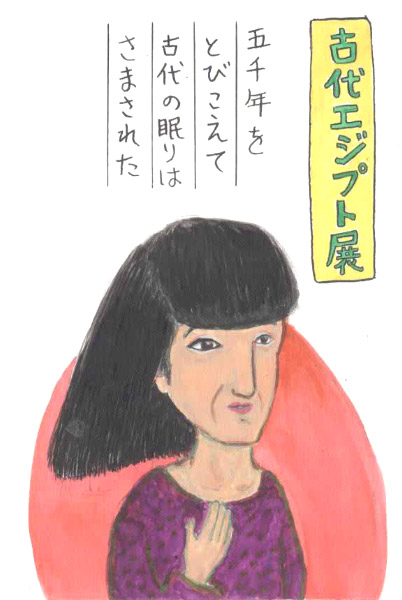 古代エジプト展
五千年を
とびこえて
古代の眠りは
さまされた